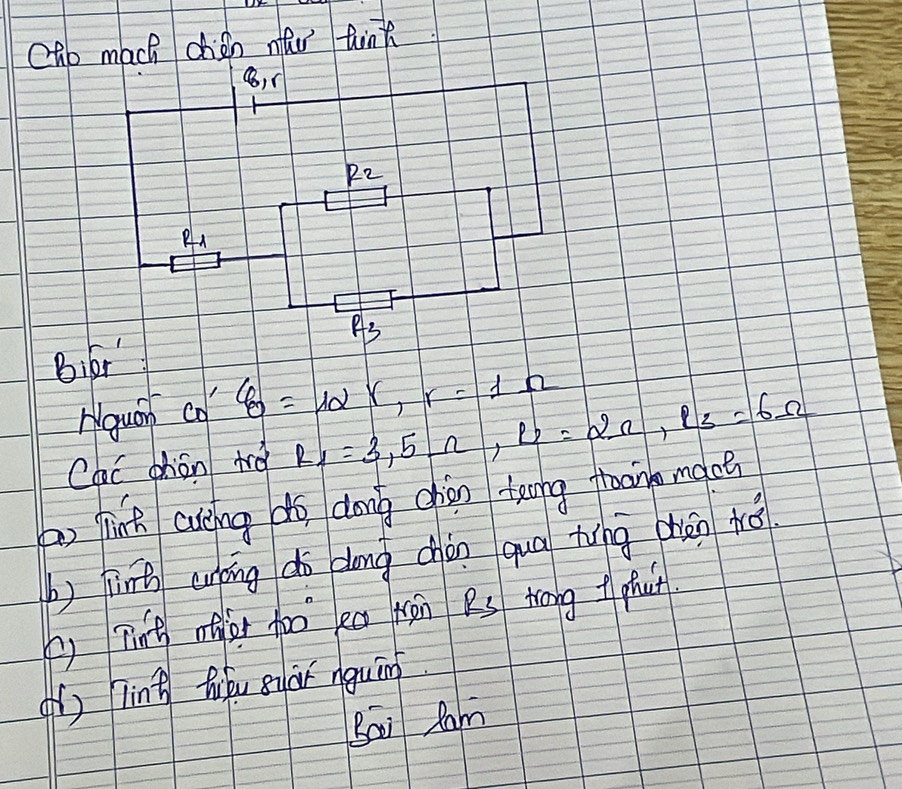 Cho mạch điện như hình.
ℰ, r
R2
R1
R3
Biết:
Nguồn có ℰ = 12 V, r = 1 Ω
Các điện trở R1 = 3,5 Ω, R2 = 2 Ω, R3 = 6 Ω
a) Tính cường độ dòng điện trong toàn mạch
b) Tính cường độ dòng điện qua từng điện trở.
c) Tính nhiệt toả ra trên R3 trong 1 phút.
d) Tính hiệu suất nguồn.
Bài làm